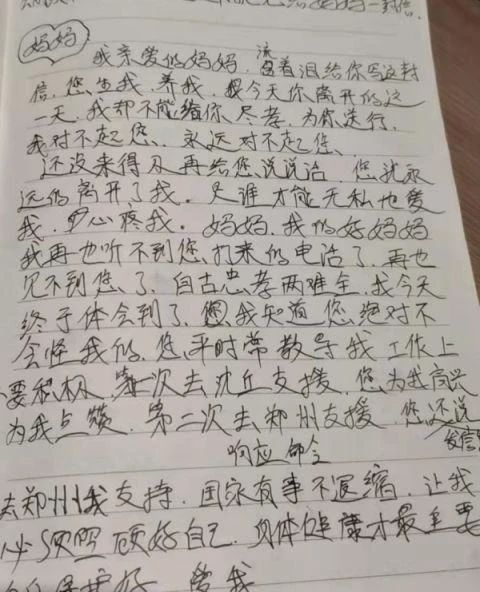 妈妈一封信.
妈妈
我亲爱的妈妈. 流着泪给你写这封
信. 您生我. 养我. 今天你离开的这
一天. 我却不能给你尽孝. 为你送行.
我对不起您. 永远对不起您.
还没来得及再给您说说话 您就永
远的离开了我. 又谁才能无私地爱
我. 心疼我. 妈妈. 我的好妈妈
我再也听不到您打来的电话了. 再也
见不到您了. 自古忠孝两难全. 我今天
终于体会到了. 我知道您绝对不
会怪我的. 您平时常教导我工作上
要积极. 第一次去沈丘支援. 您为我高兴
为我点赞. 第二次去郑州支援. 您还说
响应命令
去郑州我支持. 国家有事不退缩. 让我
必须照顾好自己. 身体健康才最重要
保护好 爱我